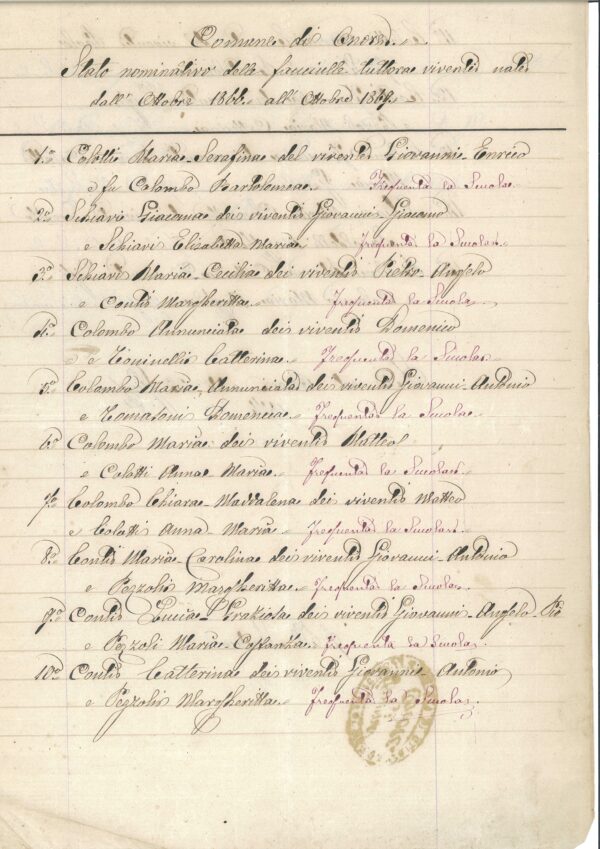 Comune di Cnore
Stato nominativo delle fanciulle tuttora viventi nate
dall' Ottobre 1861 all' Ottobre 1869.
1.o Colotti Maria Serafina del vivente Giovanni Enrico
e fu Colombo Bartolomea. Frequenta la Scuola.
2.o Schiavi Giacoma dei viventi Giovanni Giacomo
e Schiavi Elisabetta Maria Frequenta la Scuola.
3.o Schiavi Maria Cecilia dei viventi Pietro Angelo
e Conti Margheritta. Frequenta la Scuola.
4.o Colombo Annunciata dei viventi Domenico
e Toninelli Catterina. Frequenta la Scuola.
5.o Colombo Maria Annunciata dei viventi Giovanni Antonio
e Tomasoni Domenica. Frequenta la Scuola.
6.o Colombo Maria dei viventi Matteo
e Colotti Anna Maria. Frequenta la Scuola.
7.o Colombo Chiara Maddalena dei viventi Matteo
e Colotti Anna Maria. Frequenta la Scuola.
8.o Conti Maria Carolina dei viventi Giovanni Antonio
e Pezzoli Margheritta. Frequenta la Scuola.
9.o Conti Lucia Graziosa dei viventi Giovanni Angelo
e Pezzoli Maria Costanza. Frequenta la Scuola.
10.o Conti Catterina dei viventi Giovanni Antonio
e Pezzoli Margheritta. Frequenta la Scuola.